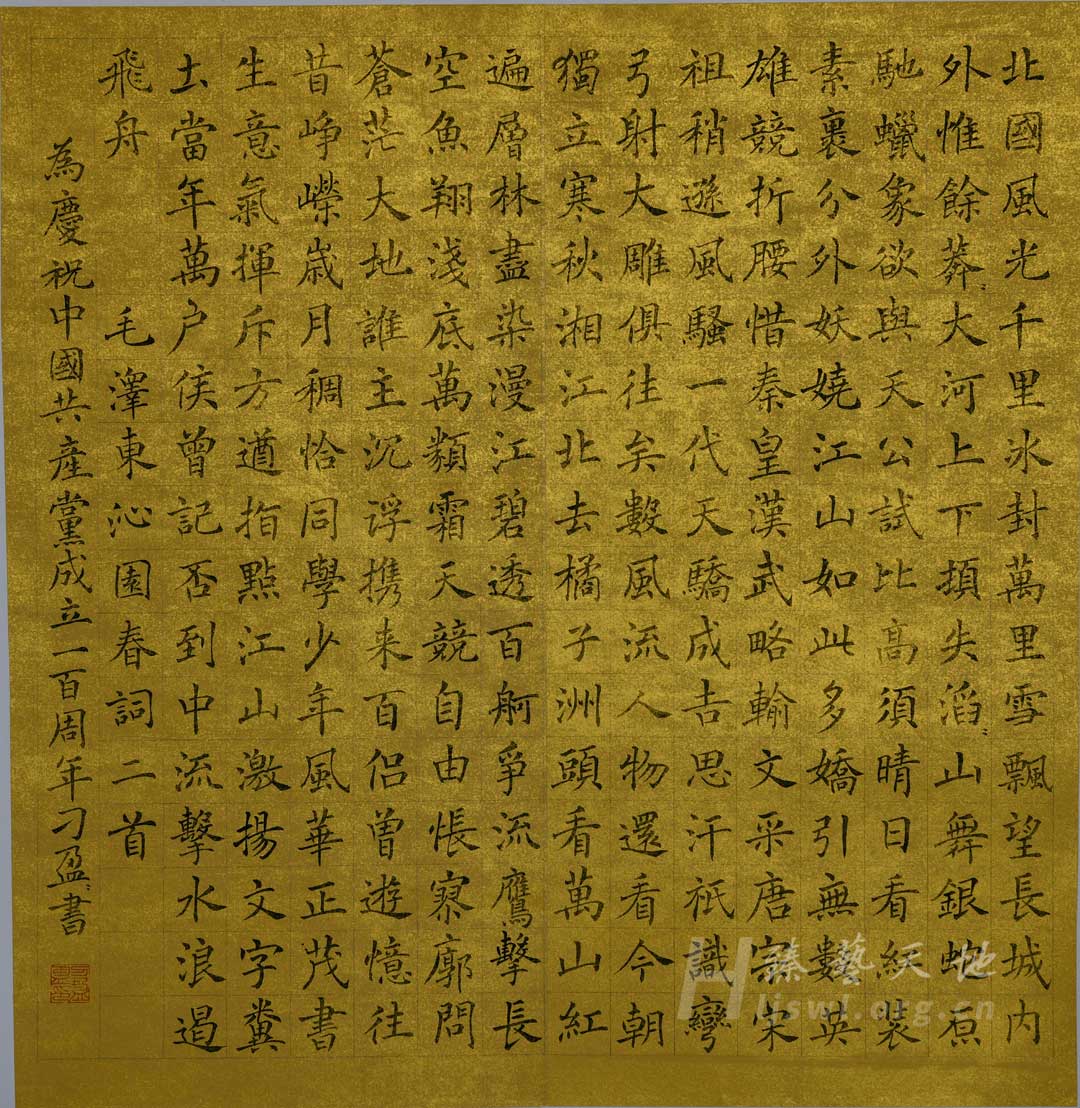 北國風光千里冰封萬里雪飄望長城内
外惟餘莽〻大河上下頓失滔〻山舞銀蛇原
馳蠟象欲與天公試比高須晴日看紅裝
素裹分外妖嬈江山如此多嬌引無數英
雄競折腰惜秦皇漢武略輸文采唐宗宋
祖稍遜風騷一代天驕成吉思汗祇識彎
弓射大雕俱往矣數風流人物還看今朝
獨立寒秋湘江北去橘子洲頭看萬山紅
遍層林盡染漫江碧透百舸爭流鷹擊長
空魚翔淺底萬類霜天競自由悵寥廓問
蒼茫大地誰主沉浮携来百侣曾遊憶往
昔崢嶸歲月稠恰同學少年風華正茂書
生意氣揮斥方遒指點江山激揚文字糞
土當年萬户侯曾記否到中流擊水浪遏
飛舟 毛澤東沁園春詞二首
為慶祝中國共產黨成立一百周年刁盈〻書
臻藝天地